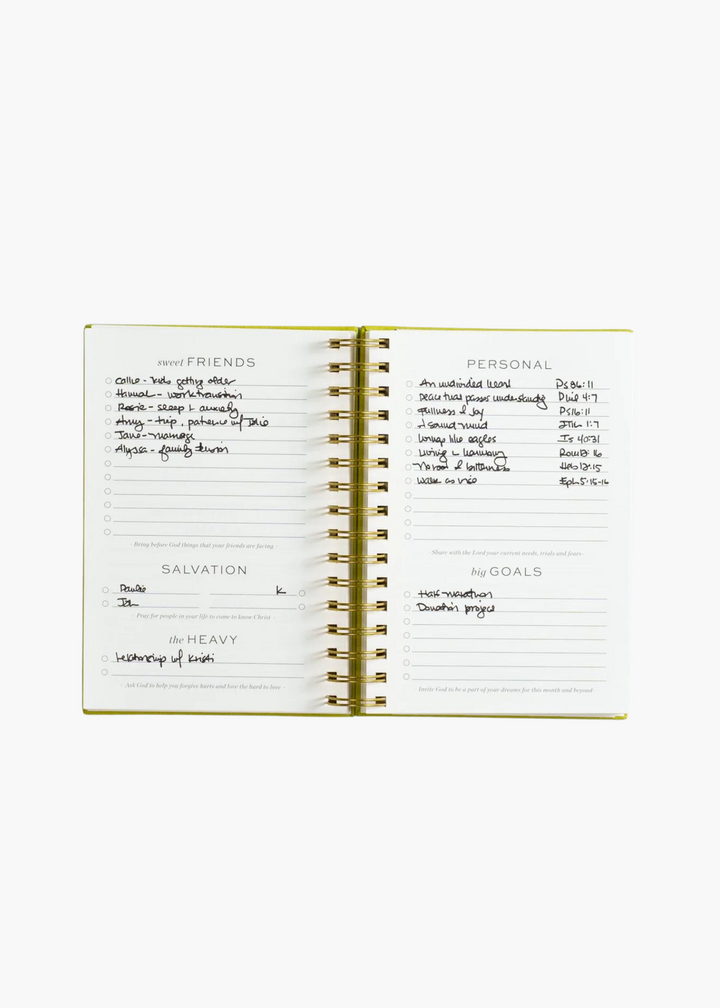 sweet FRIENDS
Callie - kids getting older
Hannah - work transition
Rosie - sleep + anxiety
Amy - trip, patience w/
Jane - marriage
Alyssa - family tension
Bring before God things that your friends are facing
SALVATION
Paulie K
Pray for people in your life to come to know Christ
the HEAVY
relationship w/ Kristi
Ask God to help you forgive hurts and love the hard to love
PERSONAL
An undivided heart Ps 86:11
peace that passes understanding Phil 4:7
fullness of Joy Ps 16:11
A sound mind 1:7
wings like eagles Is 40:31
Living in harmony Rom 12:16
No root of bitterness Heb 12:15
walk as wise Eph 5:15-16
Share with the Lord your current needs, trials and fears
big GOALS
Half-marathon
Donation project
Invite God to be a part of your dreams for this month and beyond